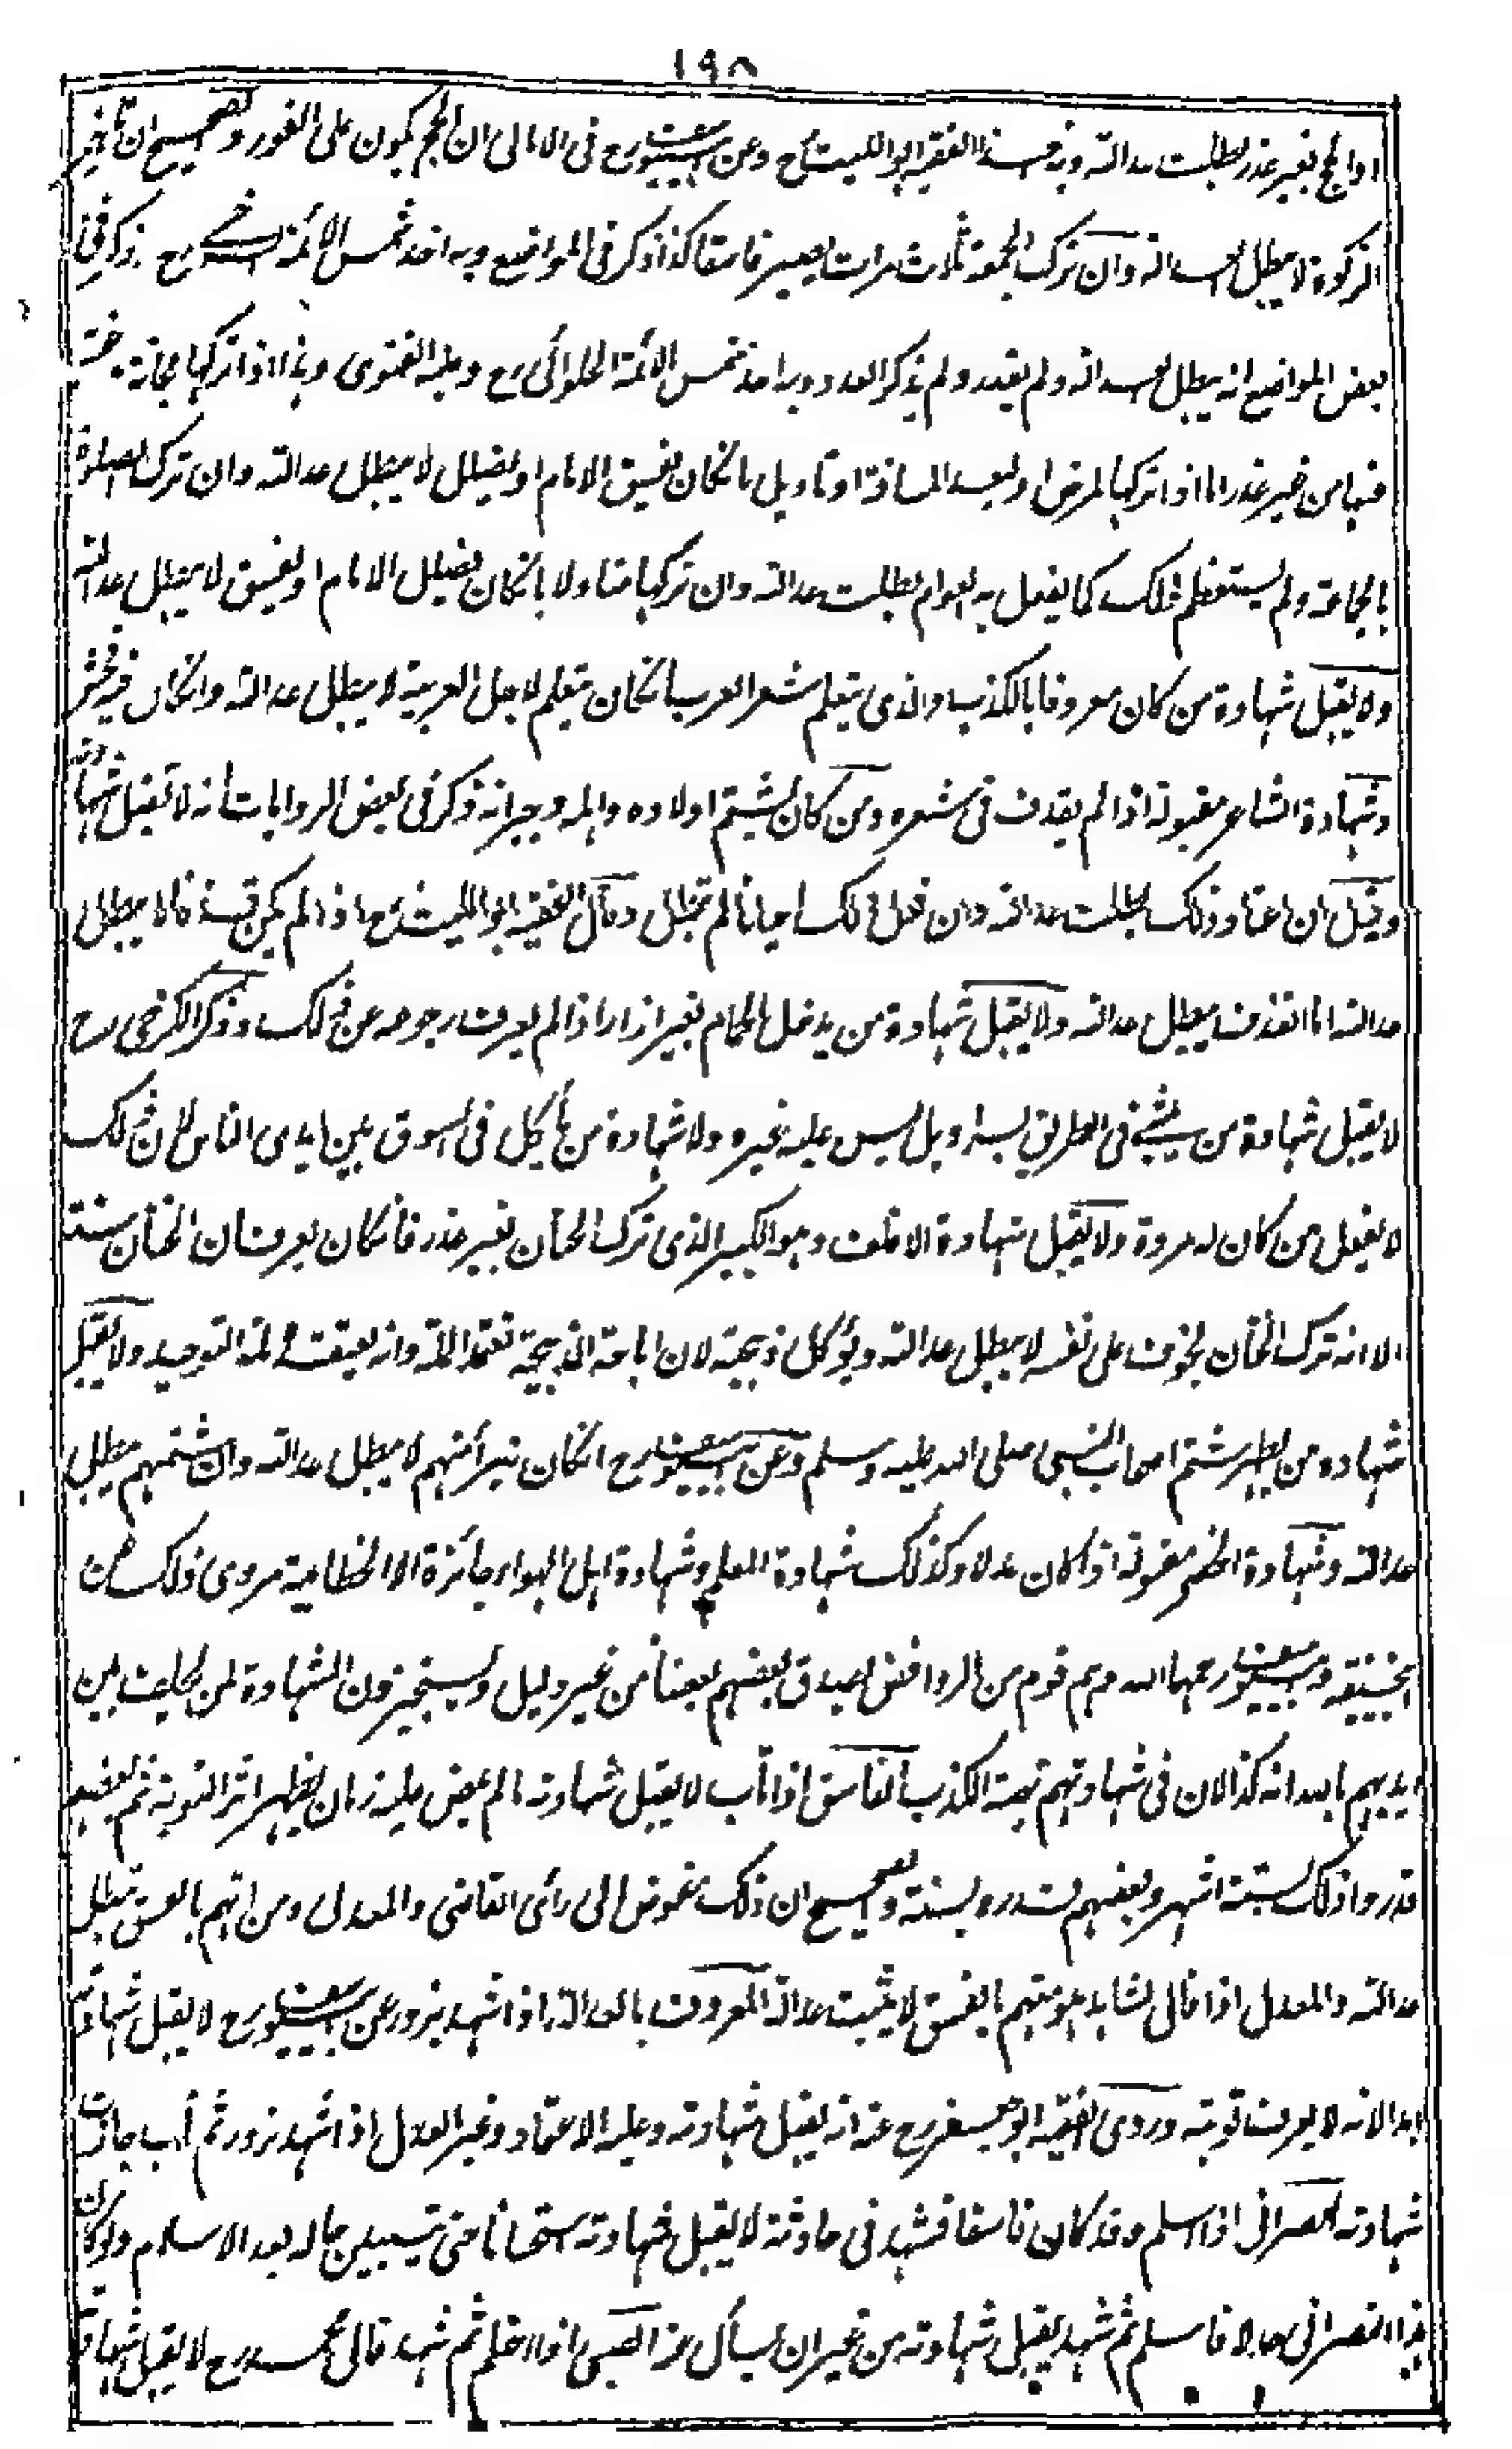 ١٩٨
او الحج بغير عذر بطلت عدالته وبه اخذ الفقيه ابو الليث رح وعن ابي يوسف رح فى الامالى ان الحج يكون على الفور والصحيح ان تاخير
الزكوة لا يبطل العدالة وان ترك الجمعة ثلاث مرات يصير فاسقا كذا ذكر فى المواضع وبه اخذ شمس الائمة السرخسي رح وذكر فى
بعض المواضع انه يبطل العدالة ولم يقيد ولم يذكر العدد وبه اخذ شمس الائمة الحلوائى رح وعليه الفتوى وهذا اذا تركها مجانة رغبة
عنها من غير عذر اما اذا تركها لمرض او لبعد المسافة او تاويل بانكان يفسق الامام او يضلل لا يبطل عدالته وان ترك الصلوة
بالجماعة ولم يستعظم ذلك كما يفعل به العوام بطلت عدالته وان تركها متاولا بانكان يضلل الامام او يفسق لا يبطل عدالته
ولا يقبل شهادة من كان معروفا بالكذب والذى يتعلم شعر العرب انكان يتعلم لاجل العربية لا يبطل عدالته وانكان فيه فحش
وشهادة الشاعر مقبولة اذا لم يقذف فى شعره ومن كان يشتم اولاده واهله وجيرانه ذكر فى بعض الروايات انه لا تقبل شهادته
وقيل ان اعتاد ذلك بطلت عدالته وان فعل ذلك احيانا لم تبطل وقال الفقيه ابو الليث رح اذا لم يكن قذفا لا يبطل
عدالته اما القذف يبطل عدالته ولا يقبل شهادة من يدخل الحمام بغير ازار اذا لم يعرف رجوعه عن ذلك وذكر الكرخى رح
لا يقبل شهادة من يمشى فى الطريق بسراويل ليس عليه غيره ولا شهادة من يأكل فى السوق بين ايدى الناس لان ذلك
لا يفعل من كان له مروة ولا يقبل شهادة الاقلف وهو الكبير الذى ترك الختان بغير عذر فانكان يعرف ان الختان سنة
الا انه ترك الختان لخوف على نفسه لا يبطل عدالته ويؤكل ذبيحته لان اباحة الذبيحة تعتمد الملة وانه يعتقد ملة التوحيد ولا يقبل
شهادة من يظهر شتم اصحاب النبى صلى الله عليه وسلم وعن ابي يوسف رح انكان تبرأ منهم لا يبطل عدالته وان شتمهم يبطل
عدالته وشهادة الخصى مقبولة اذا كان عدلا وكذلك شهادة المعلم وشهادة اهل الهواء جائزة الا الخطابية مروى ذلك عن
ابي حنيفة وابي يوسف رحمهما الله وهم قوم من الروافض يصدق بعضهم بعضا من غير دليل ويستجيزون الشهادة لمن يحلف بين
ايديهم بالله انه كذا لان فى شهادتهم تهمة الكذب الفاسق اذا تاب لا يقبل شهادته ما لم يمض عليه زمان يظهر اثر التوبة ثم بعضهم
قدروا ذلك بستة اشهر وبعضهم قدروه بسنة والصحيح ان ذلك مفوض الى رأى القاضى والمعدل ومن اتهم بالفسق تبطل
عدالته والمعدل اذا قال لشاهد هو متهم بالفسق لا يثبت عدالة المعروف بالعدالة اذا شهد بزور عن ابي يوسف رح لا يقبل شهادته
ابدا لانه لا يعرف توبته وروى الفقيه ابو جعفر رح عنه انه يقبل شهادته وعليه الاعتماد وغير العدل اذا شهد بزور ثم تاب جازت
شهادته النصرانى اذا اسلم وقد كان فاسقا فشهد فى حادثة لا يقبل شهادته استحسانا حتى يتبين حاله بعد الاسلام ولو كان
هذا النصرانى عدلا فاسلم ثم شهد يقبل شهادته من غير ان يسأل عنه الصبى اذا احتلم ثم شهد قال محمد رح لا يقبل شهادته